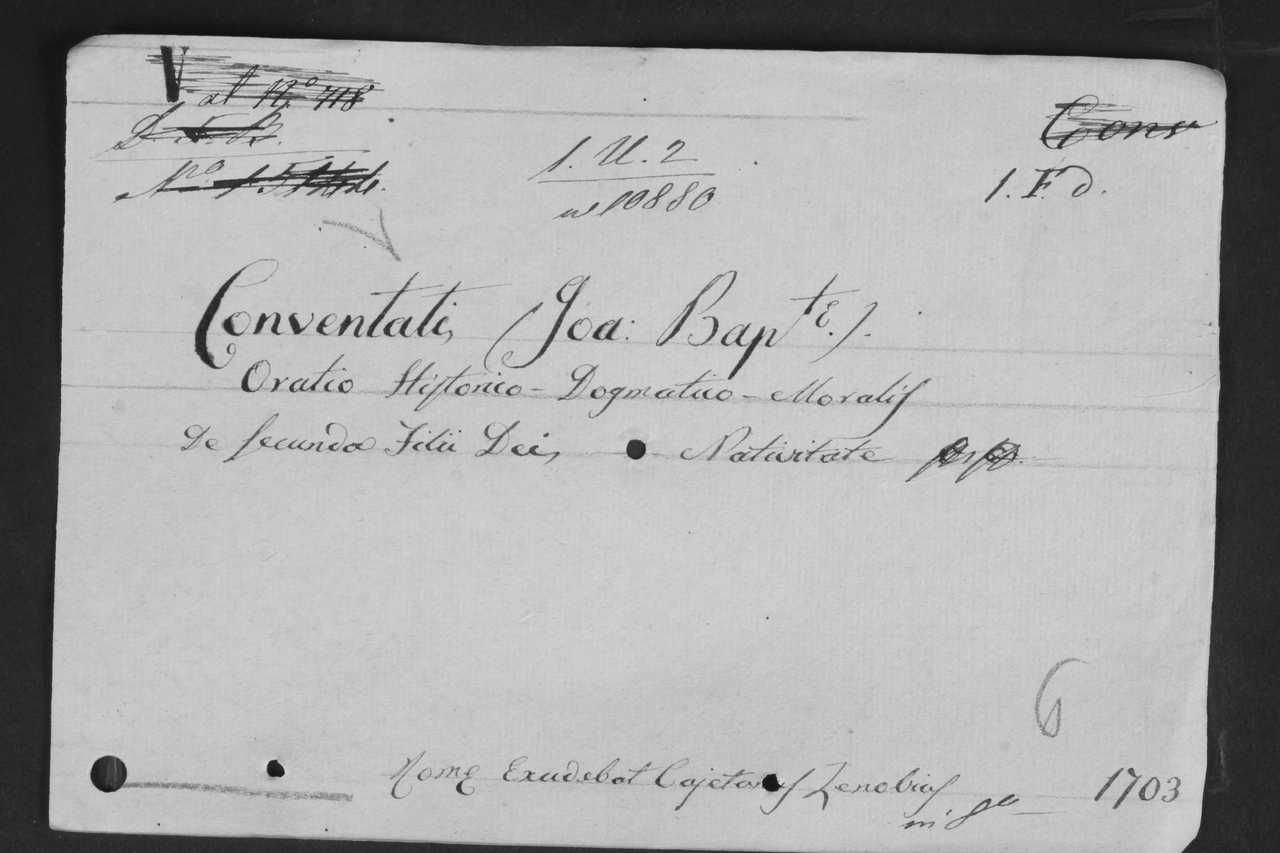 V. al N.º 718
Conv
1. U. 2
1. F. d.
10880
Conventati, (Joa: Bap.te).
Oratio Historico-Dogmatico-Moralis
De secunda Filii Dei, Nativitate
Rome Exudebat Cajetanus Zenobius
in 8º
1703